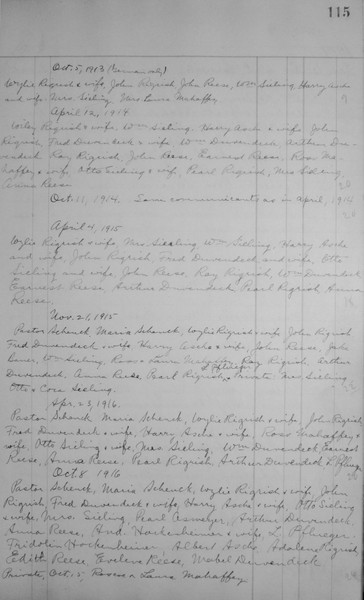 115
Oct. 5, 1913
Wylie Rigrish & wife, John Rigrish, John Reese, Wm Sieling, Harry Asche
and wife, Mrs. Sieling, Mrs Laura Mahaffey
April 12, 1914
Wiley Rigrish & wife, Wm Sieling, Harry Asche & wife, John
Rigrish, Fred Duvendeck & wife, Wm Duvendeck, Arthur Duvendeck
Ray Rigrish, John Reese, Earnest Reese, Ross Ma-
haffey & wife, Otto Sieling & wife, Pearl Rigrish, Mrs Sieling,
Anna Reese
Oct. 11, 1914. Same communicants as in April, 1914
April 4, 1915
Wylie Rigrish & wife, Mrs. Sieling, Wm Sieling, Harry Asche
and wife, John Rigrish, Fred Duvendeck and wife, Otto
Sieling and wife, John Reese, Ray Rigrish, Wm Duvendeck
Earnest Reese, Arthur Duvendeck, Pearl Rigrish, Anna
Reese.
Nov. 21, 1915
Pastor Schenck, Maria Schenck, Wylie Rigrish & wife, John Rigrish
Fred Duvendeck & wife, Harry Asche & wife, John Reese, John
Wm Sieling, Ross & Laura Mahaffey, Ray Rigrish, Arthur
Duvendeck, Anna Reese, Pearl Rigrish, L Pflueger Private: Mrs Sieling
Otto & Cora Sieling.
Apr. 23, 1916.
Pastor Schenck, Maria Schenck, Wylie Rigrish & wife, John Rigrish,
Fred Duvendeck & wife, Harry Asche & wife, Ross Mahaffey &
wife, Otto Sieling & wife, Mrs. Sieling, Wm Duvendeck, Earnest
Reese, Anna Reese, Pearl Rigrish, Arthur Duvendeck, L. Pflueger
Oct 8 1916
Pastor Schenck, Maria Schenck, Wylie Rigrish & wife, John
Rigrish, Fred Duvendeck & wife, Harry Asche & wife, Otto Sieling
& wife, Mrs. Sieling, Pearl Arthur Duvendeck,
Anna Reese, And. Hockenheimer & wife, L. Pflueger,
Fridolin Hockenheimer Albert Asche, Adaline Rigrish,
Edith Reese, Evelena Reese, Mabel Duvendeck
Private, Oct. 15, Roscoe & Laura Mahaffey